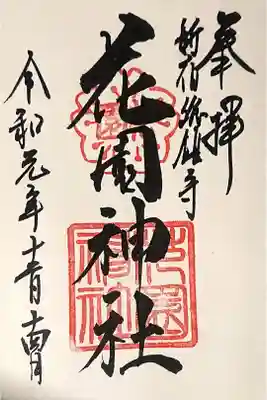 奉拝
新宿総鎮守
花園神社
令和元年十一月
花園
神社